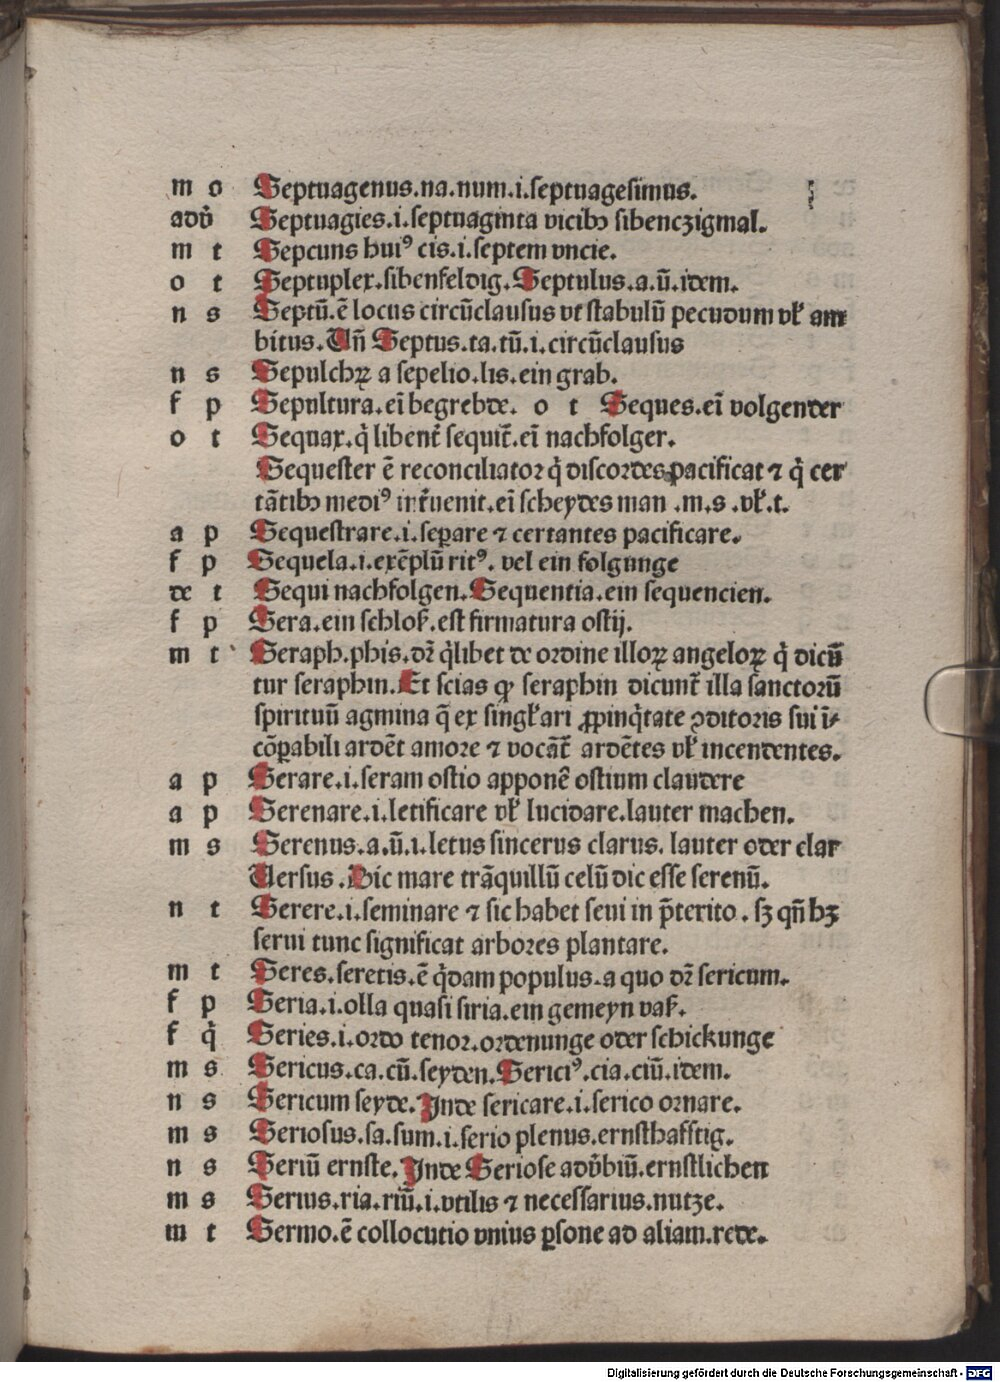 m o Septuagenus.na.num.i.septuagesimus.
adv̄ Septuagies.i.septuaginta vicibꝫ sibenczigmal.
m t Sepcuns huiꝰ cis.i.septem vncie.
o t Septuplex.sibenfeldig.Septulus.a.ū.idem.
n s Septū.ē locus circūclausus vt stabulū pecudum vl̓ am
bitus.Un̄ Septus.ta.tū.i.circūclausus
n s Sepulchꝝ a sepelio.lis.ein grab.
f p Sepultura.eī begrebde. o t Seques.eī volgender
o t Sequax.q̇ libent̄ sequit̄.eī nachfolger.
Sequester ē reconciliator q̇ discordes pacificat ⁊ q̇ cer
tātibꝫ mediꝰ int̄uenit.eī scheydes man .m.s .vl̓.t.
a p Sequestrare.i.seꝑare ⁊ certantes pacificare.
f p Sequela.i.exēplū ritꝰ. vel ein folgunge
de t Sequi nachfolgen.Sequentia.ein sequencien.
f p Sera.ein schloß.est firmatura ostij.
m t Seraph.phis.dr̄ q̇libet de ordine illoꝝ angeloꝝ q̇ dicū
tur seraphin.Et scias ꝙ seraphin dicunt̄ illa sanctorū
spirituū agmina q̄ ex singl̓ari ꝓpinq̇tate ꝯditoris sui ī⸗
cōꝑabili ardēt amore ⁊ vocāt̄ ardētes vl̓ incendentes.
a p Serare.i.seram ostio apponē ostium claudere
a p Serenare.i.letificare vl̓ lucidare.lauter machen.
m s Serenus.a.ū.i.letus sincerus clarus. lauter oder clar
Uersus .Hic mare trāquillū celū dic esse serenū.
n t Serere.i.seminare ⁊ sic habet seui in p̄terito . sꝫ qn̄ hꝫ
serui tunc significat arbores plantare.
m t Seres.seretis.ē q̇dam populus.a quo dr̄ sericum.
f p Seria.i.olla quasi siria.ein gemeyn vaß.
f q̇ Series.i.ordo tenor.ordenunge oder schickunge
m s Sericus.ca.cū.seyden.Sericiꝰ.cia.ciū.idem.
n s Sericum seyde.Inde sericare.i.serico ornare.
m s Seriosus.sa.sum.i.serio plenus.ernsthafftig.
n s Seriū ernste.Inde Seriose adv̄biū.ernstlichen
m s Serius.ria.riū.i.vtilis ⁊ necessarius.nutze.
m t Sermo.ē collocutio vnius ꝑsone ad aliam.rede.
Digitalisierung gefördert durch die Deutsche Forschungsgemeinschaft - DFG